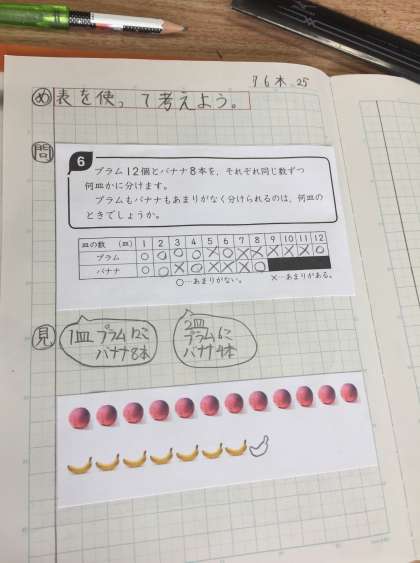 7 6 木 25
め 表を使って考えよう。
問
6
プラム12個とバナナ8本を、それぞれ同じ数ずつ
何皿かに分けます。
プラムもバナナもあまりがなく分けられるのは、何皿の
ときでしょうか。
皿の数 (皿) 1 2 3 4 5 6 7 8 9 10 11 12
プラム ○ ○ ○ ○ × ○ × × × × × ○
バナナ ○ ○ × ○ × × × ○
○…あまりがない。 ×…あまりがある。
見
1皿 プラム12こ
バナナ8本
2皿
プラム6こ
バナナ4本